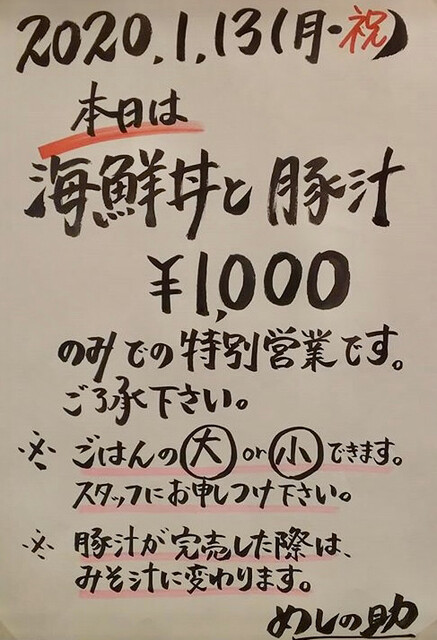 2020.1.13(月・祝)
本日は
海鮮丼と豚汁
¥1,000
のみでの特別営業です。
ご了承下さい。
※ ごはんの大or小できます。
スタッフにお申しつけ下さい。
※ 豚汁が完売した際は、
みそ汁に変わります。
めしの助